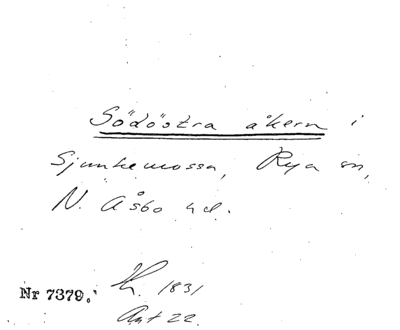 Södöstra åkern i
Sjunkemossa, Rya sn,
N. Åsbo hd.
Nr 7379.
1831
Ant 22.